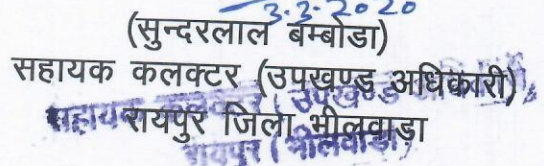 3.3.2020
(सुन्दरलाल बम्बोडा)
सहायक कलक्टर (उपखण्ड अधिकारी)
रायपुर जिला भीलवाड़ा
सहायक कलक्टर (उपखण्ड
रायपुर (भीलवाड़ा)